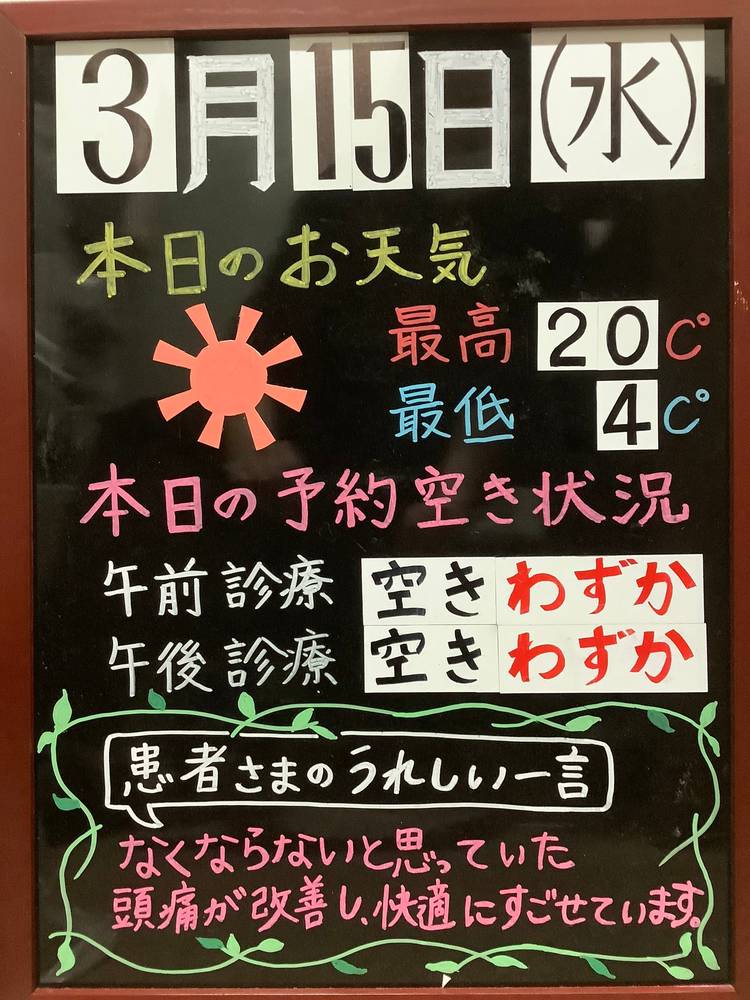 3月15日(水)
本日のお天気
最高 20C°
最低 4C°
本日の予約空き状況
午前診療 空きわずか
午後診療 空きわずか
患者さまのうれしい一言
なくならないと思っていた
頭痛が改善し、快適にすごせています。